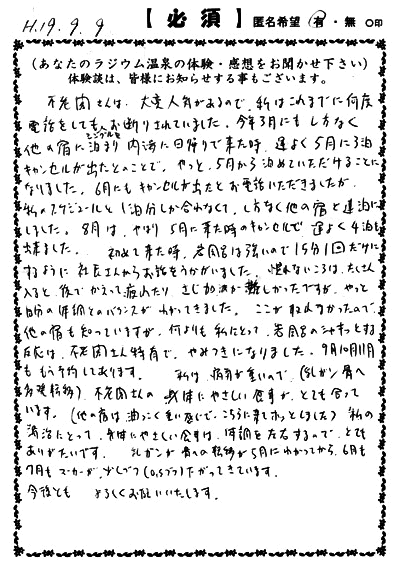 H.19.9.9 【必須】 匿名希望 有・無 ○印
(あなたのラジウム温泉の体験・感想をお聞かせ下さい)
体験談は、皆様にお知らせする事もございます。
不老閣さんは、大変人気があるので、私はこれまでに何度
電話をしてもお断りされていました。今年3月にも しかたなく
他の宿に泊まり 内海に日帰りで来た時、運よく5月に3泊
キャンセルが出たとのことで、やっと、5月から泊めていただけることに
なりました。6月にもキャンセルが出たとお電話いただきましたが、
私のスケジュールと1泊分しか合わなくて、しかたなく他の宿と
しました。8月は、やはり5月に来た時のキャンセルで、運よく4泊
出来ました。 初めて来た時、岩風呂は強いので15分1回だけに
するように 社長さんからお話をうかがいました。慣れないころは、たくさん
入ると、後でかえって疲れたり、さじ加減が難しかったですが、やっと
自分の体調とのバランスがわかってきました。ここが取れなかったので、
他の宿も知っていますが、何よりも私にとって、岩風呂のシャキッとする
反応は、不老閣さん特有で、やみつきになりました。9月10月11月
も もう予約してあります。 私は、病気が重いので、(乳ガン骨へ
多発転移)、不老閣さんの 身体にやさしい食事が、とても合って
います。(他の宿は油っこく重い感じで、こちらに来てホッとしました) 私の
治にとって、身体にやさしい食事は、体調を左右するので、とても
ありがたいです。 乳ガンが骨への転移が5月にわかってから、6月も
7月も マーカーが、少しづつ(0.5づつ)下がってきています。
今後とも よろしくお願いいたします。